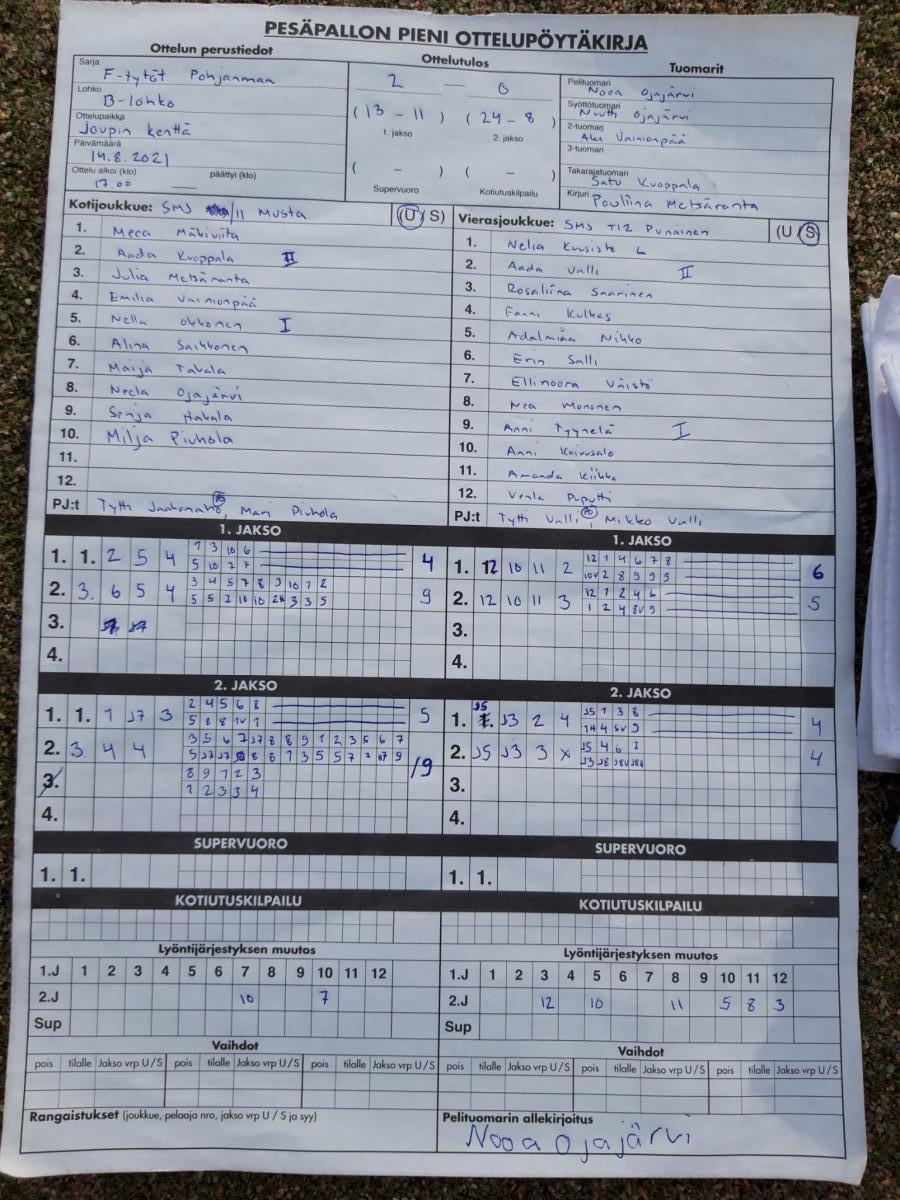 PESÄPALLON PIENI OTTELUPÖYTÄKIRJA
Ottelun perustiedot
Ottelutulos
Tuomarit
Sarja
F-tytöt Pohjanmaa
Lohko
B-lohko
Ottelupaikka
Joupin kenttä
Päivämäärä
14.8.2021
Ottelu alkoi (klo) päättyi (klo)
17.00
2 — 0
(13 - 11) (24 - 8)
1. jakso 2. jakso
( - ) ( - )
Supervuoro Kotiutuskilpailu
Pelituomari
Nooa Ojajärvi
Syöttötuomari
Ojajärvi
2-tuomari
Vainionpää
3-tuomari
Takarajatuomari
Satu Kuoppala
Kirjuri
Pauliina Metsäranta
Kotijoukkue: SMJ /11 Musta (U/S)
1. Meea Mäkiviita
2. Aada Kuoppala II
3. Julia Metsäranta
4. Emilia Vainionpää
5. Nella Okkonen I
6. Alina Saikkonen
7. Maija Takala
8. Neela Ojajärvi
9. Senja Hakala
10. Milja Piuhola
11.
12.
PJ:t Tytti, Mari Piuhola
Vierasjoukkue: SMJ T12 Punainen (U/S)
1. Nelia Kuusisto L
2. Aada Valli II
3. Rosaliina Saarinen
4. Fanni Kulkas
5. Adalmiina Nikko
6. Erin Salli
7. Ellinoora Väistö
8. Nea Mononen
9. Anni Tyynelä I
10. Anni Koivusalo
11. Amanda Kiikka
12. Venla Puputti
PJ:t Tytti Valli, Mikko Valli
1. JAKSO
1. 1. 2 5 4 4
2. 3. 6 5 4 9
3 4 5 7 8 9 10 1 2
3.
4.
1. JAKSO
1. 12 10 11 2 6
12 1 4 6 7 8
2. 12 10 11 3 5
12 1 2 4 6
3.
4.
2. JAKSO
1. 1. 1 J7 3 5
2 4 5 6 8
5 8 8 1V 1
2. 3. 4 4 19
3 5 6 7 J7 8 8 9 1 2 3 5 6 7
3. 8 9 1 2 3
1 2 3 3 4
4.
2. JAKSO
1. J5 J3 2 4 4
J5 1 3 8
2. J5 J3 3 x 4
3.
4.
SUPERVUORO
1. 1.
SUPERVUORO
1. 1.
KOTIUTUSKILPAILU
KOTIUTUSKILPAILU
Lyöntijärjestyksen muutos
1.J 1 2 3 4 5 6 7 8 9 10 11 12
2.J 10 7
Sup
Lyöntijärjestyksen muutos
1.J 1 2 3 4 5 6 7 8 9 10 11 12
2.J 12 10 11 5 8 3
Sup
Vaihdot
pois tilalle Jakso vrp U / S pois tilalle Jakso vrp U / S pois tilalle Jakso vrp U / S
Vaihdot
pois tilalle Jakso vrp U / S pois tilalle Jakso vrp U / S pois tilalle Jakso vrp U / S
Rangaistukset (joukkue, pelaaja nro, jakso vrp U / S ja syy)
Pelituomarin allekirjoitus
Nooa Ojajärvi